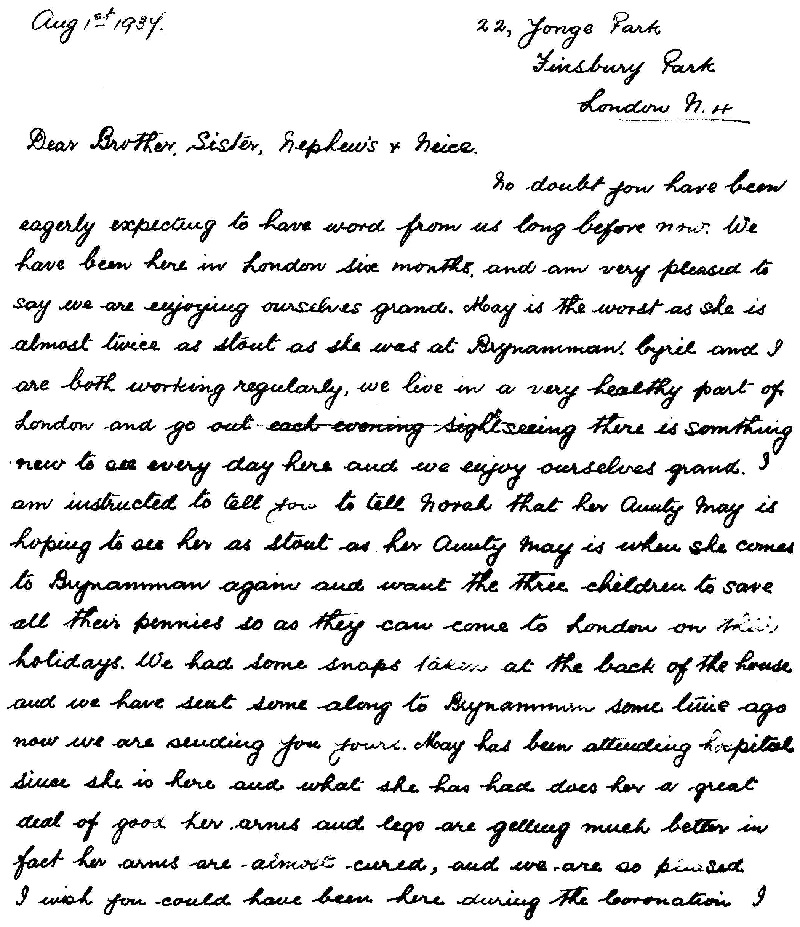 Aug 1st 1937.
22, Yonge Park
Finsbury Park
London N.4
Dear Brother, Sister, Nephew's & Neice.
No doubt you have been
eagerly expecting to have word from us long before now. We
have been here in London six months, and am very pleased to
say we are enjoying ourselves grand. May is the worst as she is
almost twice as stout as she was at Brynamman. Cyril and I
are both working regularly, we live in a very healthy part of
London and go out each evening sightseeing there is somthing
new to see every day here and we enjoy ourselves grand. I
am instructed to tell you to tell Norah that her Aunty May is
hoping to see her as stout as her Aunty May is when she comes
to Brynamman again and want the three children to save
all their pennies so as they can come to London on their
holidays. We had some snaps taken at the back of the house
and we have sent some along to Brynamman some time ago
now we are sending you yours. May has been attending hospital
since she is here and what she has had does her a great
deal of good her arms and legs are getting much better in
fact her arms are almost cured, and we are so pleased
I wish you could have been here during the Coronation I